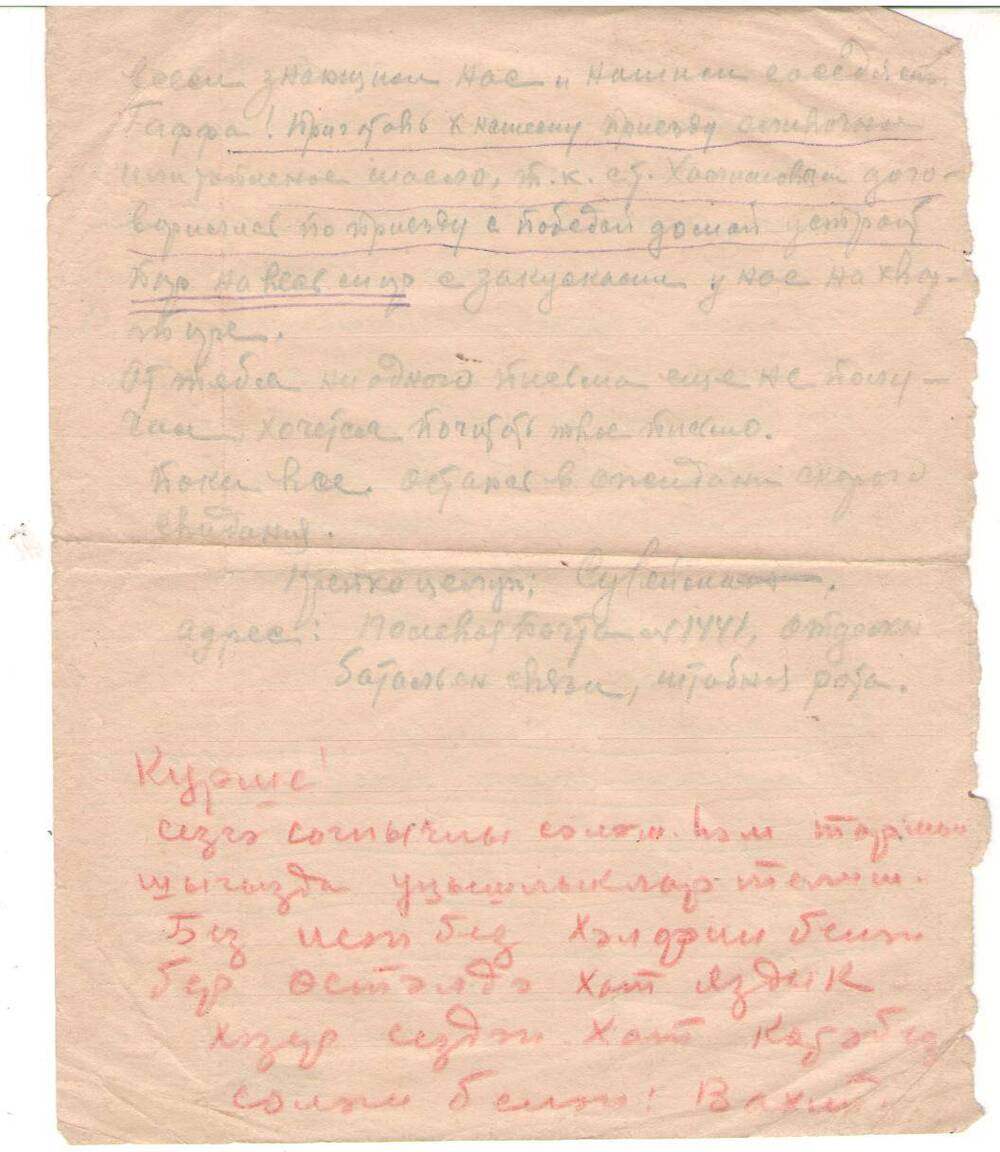 всем знающим нас и нашим соседям.
Гаффа! Приготовь к нашему приезду сливочное
и топленое масло, т.к. с т. Хатмасовым дого-
ворились по приезду с победой домой устроить
пир на весь мир с закусками у нас на квар-
тире.
От тебя ни одного письма еще не полу-
чил, хочется почитать твое письмо.
Пока все. Остаюсь в ожидании скорого
свидания.
Крепко целую:
адрес: Полевая почта № 1441, отдельн
батальон связи, штабная рота.
Курше!
сезгэ согнычлы сэлам. һэм тормы
шыгызда уңышлыклар телим.
Без исэн без Хэлфин белэн
бер өстэлдэ хат яздык
хэзер сездэн хат көтэбез
сэлам белэн: Вахит.